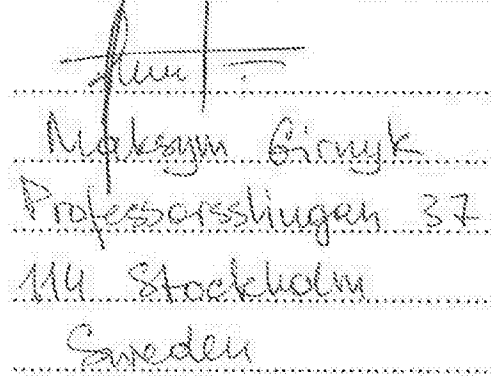 Maksym Girnyk
Professorsslingan 37
114 Stockholm
Sweden